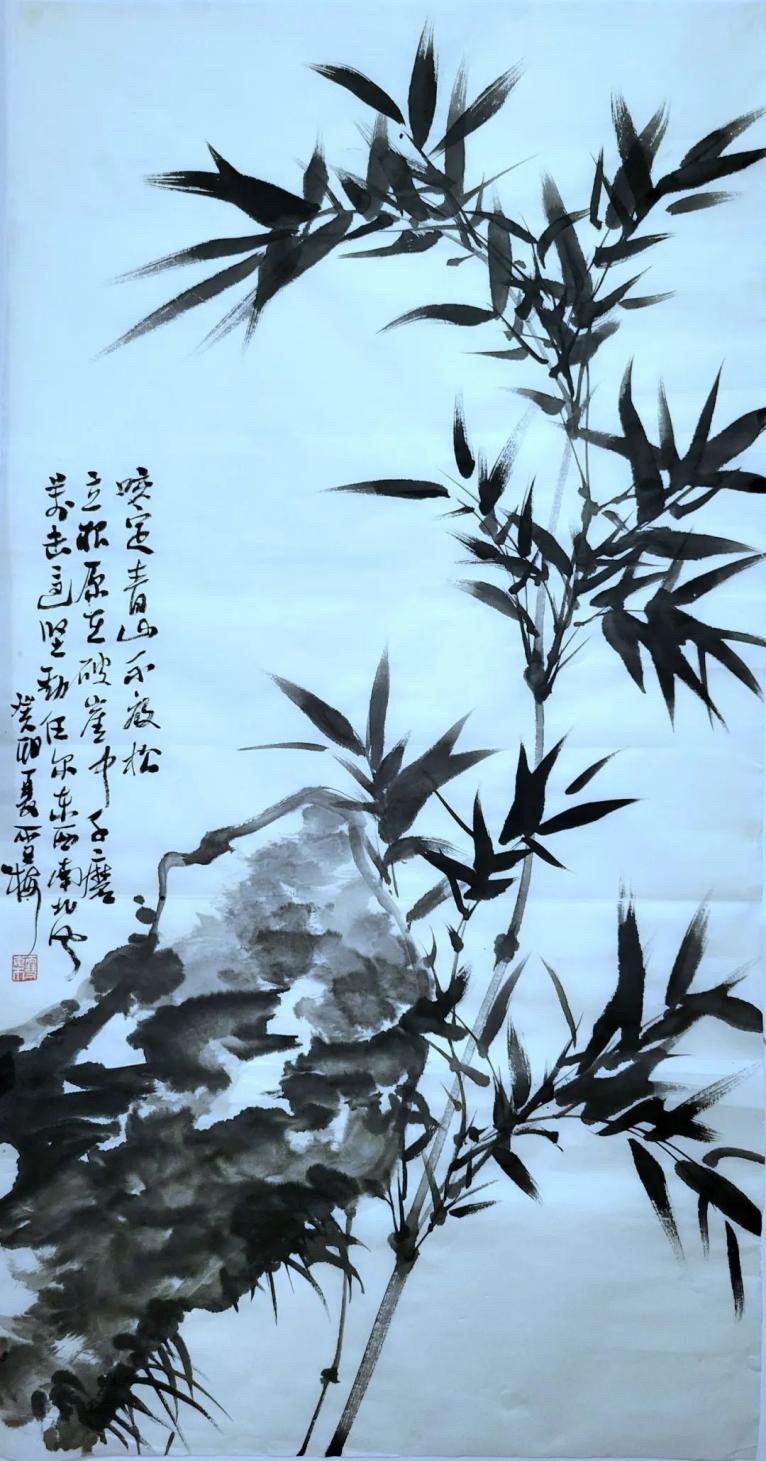 咬定青山不放松
立根原在破崖中千磨
萬击还坚劲任尔东西南北风
癸卯夏雪梅